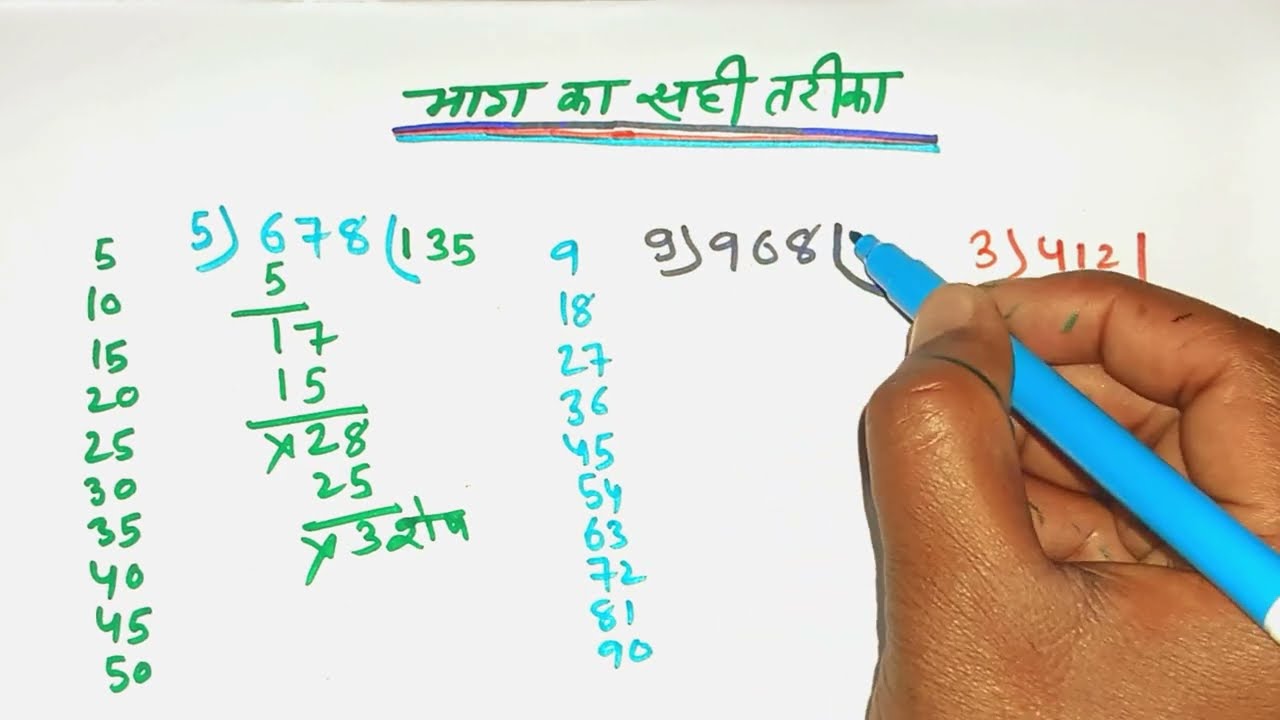 भाग का सही तरीका
5) 678 (135
5
17
15
×28
25
×3 शेष
5
10
15
20
25
30
35
40
45
50
9) 968 (
9
18
27
36
45
54
63
72
81
90
3) 412